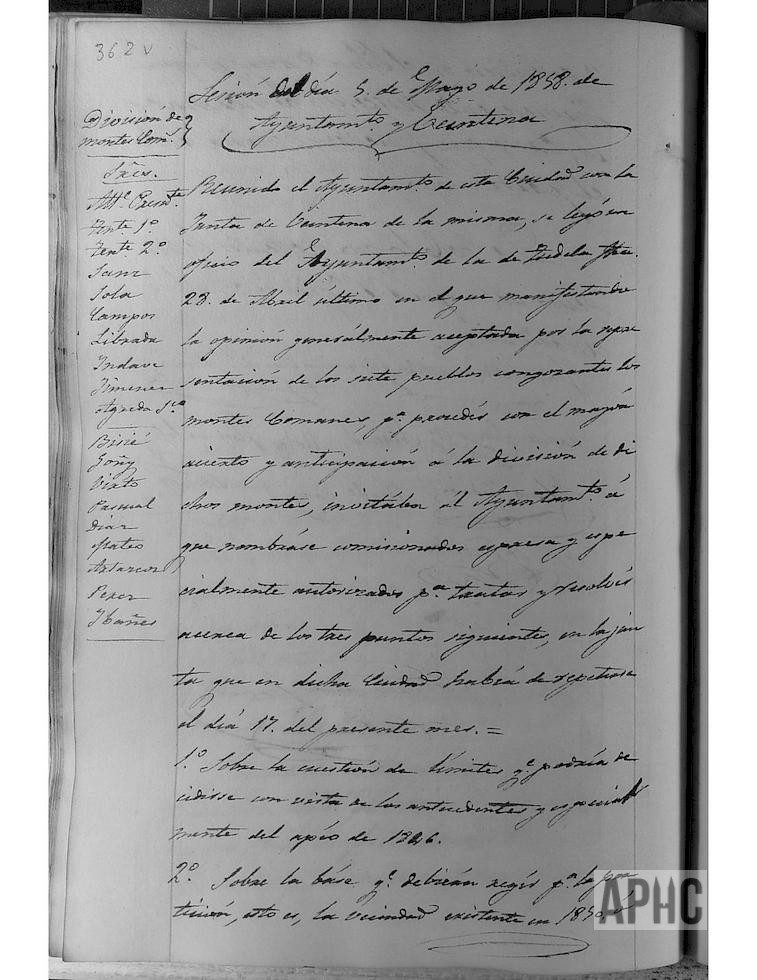 362 v
Sesión del día 5. de Mayo de 1858. de
Ayuntamto. y Veintena
División de
montes Com.
Sres.
Alle. Presidte.
Tente. 1º
Tente 2º
Sanz
Sola
Campos
Librada
Yndave
Jimenez
Agreda Sco
Bisié
Goñy
Virto
Pascual
Diaz
Mateo
Perez
Ybañes
Reunido el Ayuntamto. de esta Ciudad con la
Junta de Veintena de la misma, se leyó un
oficio del Ayuntamto. de la de Tudela fha.
28. de Abril último en el que manifestando
la opinión generalmente aceptada por la repre
sentación de los siete pueblos congozantes los
montes Comunes pª. proceder con el mayor
acierto y anticipación á la división de di
chos montes, invitaba al Ayuntamto. á
que nombráse comisionados espresa y espe
cialmente autorizados pª. tratar y resolver
acerca de los tres puntos siguientes, en la jun
ta que en dicha Ciudad habrá de repetirse
el día 17. del presente mes. =
1.º Sobre la cuestión de límites qe. podría de
cidirse con vista de los antecedentes y especial
mente del apéo de 1826.
2º Sobre la báse qe. debieran regir pª. la par
tición, esto es, la vecindad existente en 1850 ó
APHC